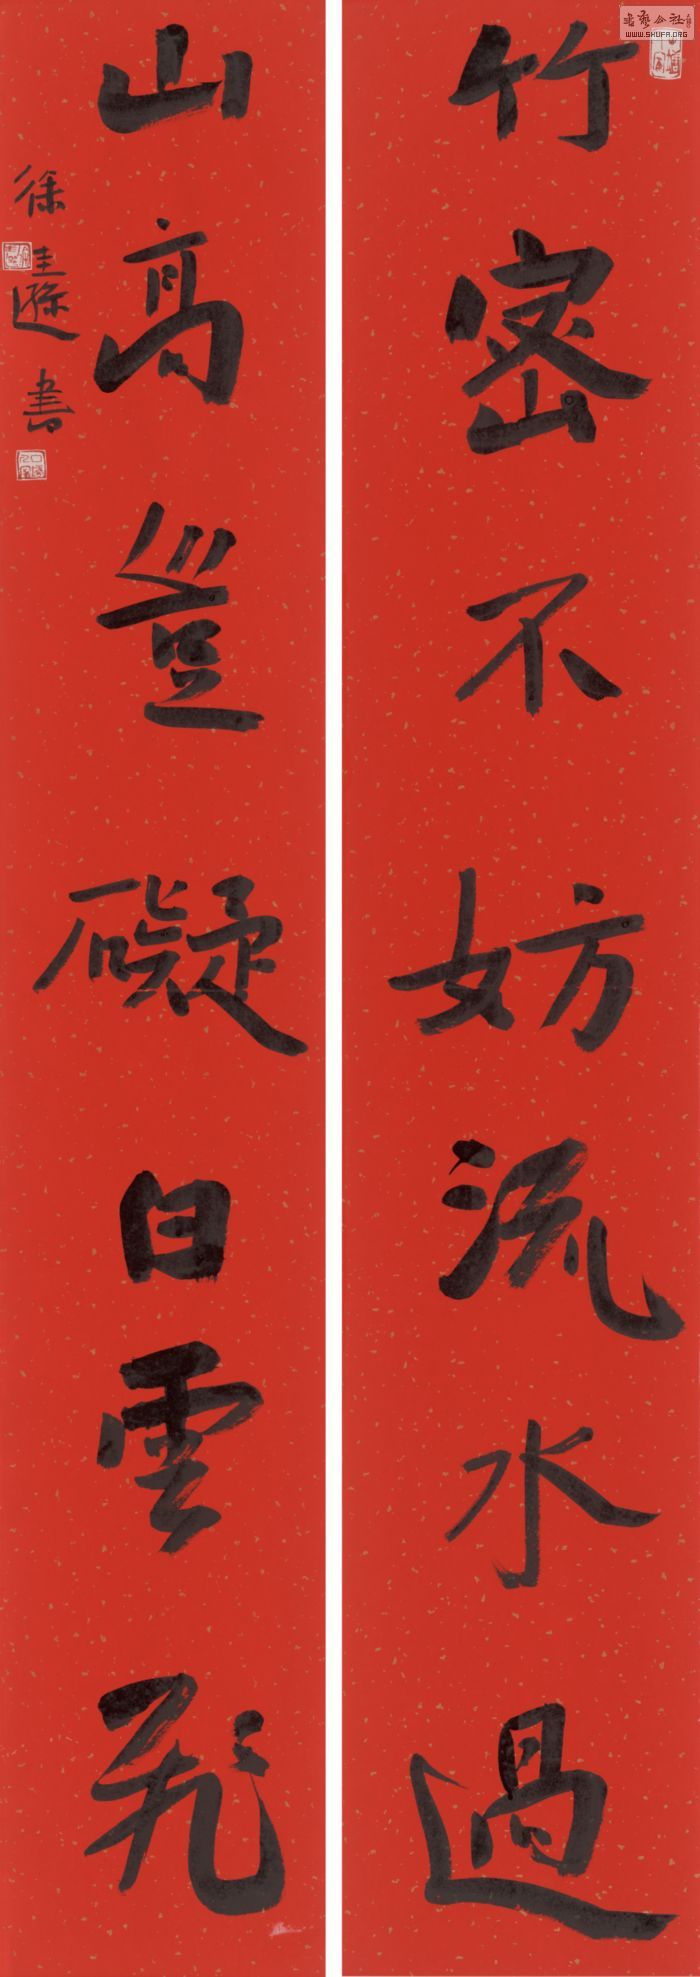 竹密不妨流水過
山高豈礙白雲飛
徐圭遜書
書藝公社
WWW.SHUFA.ORG